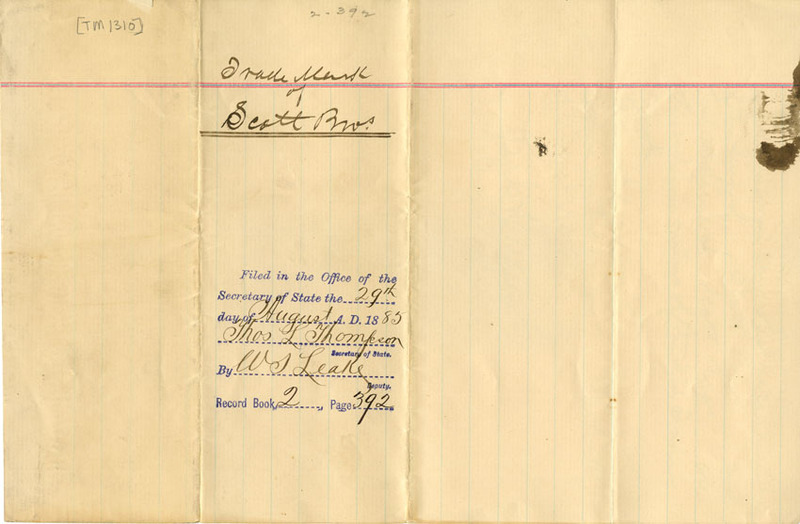 [TM1310]
2-392
Trade Mark
of
Scott Bros.
Filed in the Office of the
Secretary of State the 29th
day of August A. D. 1885
Thos L Thompson
Secretary of State.
By W S Leake
Deputy.
Record Book, 2, Page 392